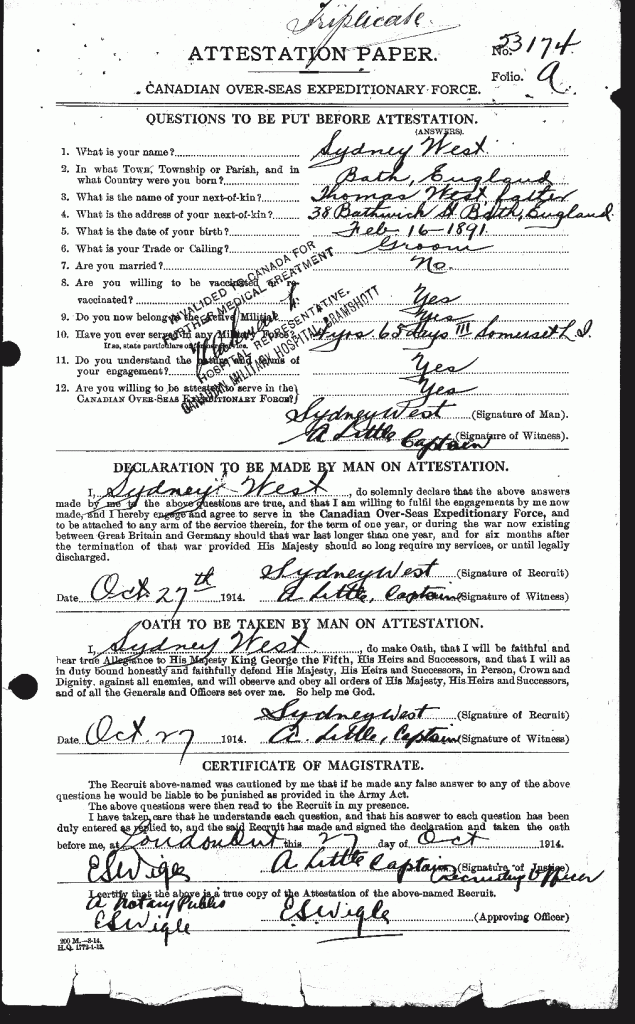 Triplicate.
ATTESTATION PAPER.
No. 53174
Folio. A
CANADIAN OVER-SEAS EXPEDITIONARY FORCE.
QUESTIONS TO BE PUT BEFORE ATTESTATION.
(ANSWERS).
1. What is your name? Sydney West
2. In what Town, Township or Parish, and in
what Country were you born? Bath, England
3. What is the name of your next-of-kin? Thomas West father
4. What is the address of your next-of-kin? 38 Bathwick St Bath, England.
5. What is the date of your birth? Feb 16-1891
6. What is your Trade or Calling? Groom
7. Are you married? No.
8. Are you willing to be vaccinated or re-
vaccinated? Yes
9. Do you now belong to the Active Militia? Yes
10. Have you ever served in any Military Force? 4 yrs 68 days III Somerset L.I.
If so, state particulars of former service.
11. Do you understand the nature and terms of
your engagement? Yes
12. Are you willing to be attested to serve in the
CANADIAN OVER-SEAS EXPEDITIONARY FORCE? Yes
INVALIDED TO CANADA FOR
FURTHER MEDICAL TREATMENT
HOSPITAL REPRESENTATIVE.
CANADIAN MILITARY HOSPITAL, BRAMSHOTT
Sydney West (Signature of Man).
A Little Captain (Signature of Witness).
DECLARATION TO BE MADE BY MAN ON ATTESTATION.
I, Sydney West, do solemnly declare that the above answers
made by me to the above questions are true, and that I am willing to fulfil the engagements by me now
made, and I hereby engage and agree to serve in the Canadian Over-Seas Expeditionary Force, and
to be attached to any arm of the service therein, for the term of one year, or during the war now existing
between Great Britain and Germany should that war last longer than one year, and for six months after
the termination of that war provided His Majesty should so long require my services, or until legally
discharged.
Sydney West (Signature of Recruit)
Date Oct. 27th 1914. A Little, Captain (Signature of Witness)
OATH TO BE TAKEN BY MAN ON ATTESTATION.
I, Sydney West, do make Oath, that I will be faithful and
bear true Allegiance to His Majesty King George the Fifth, His Heirs and Successors, and that I will as
in duty bound honestly and faithfully defend His Majesty, His Heirs and Successors, in Person, Crown and
Dignity, against all enemies, and will observe and obey all orders of His Majesty, His Heirs and Successors,
and of all the Generals and Officers set over me. So help me God.
Sydney West (Signature of Recruit)
Date Oct. 27 1914. A. Little, Captain (Signature of Witness)
CERTIFICATE OF MAGISTRATE.
The Recruit above-named was cautioned by me that if he made any false answer to any of the above
questions he would be liable to be punished as provided in the Army Act.
The above questions were then read to the Recruit in my presence.
I have taken care that he understands each question, and that his answer to each question has been
duly entered as replied to, and the said Recruit has made and signed the declaration and taken the oath
before me, at London Ont this 27 day of Oct 1914.
ESWigle A Little Captain (Signature of Justice)
Recruiting Officer
I certify that the above is a true copy of the Attestation of the above-named Recruit.
A Notary Public
ESWigle ESWigle (Approving Officer)
200 M.—8-14.
H.Q. 1772-1-13.